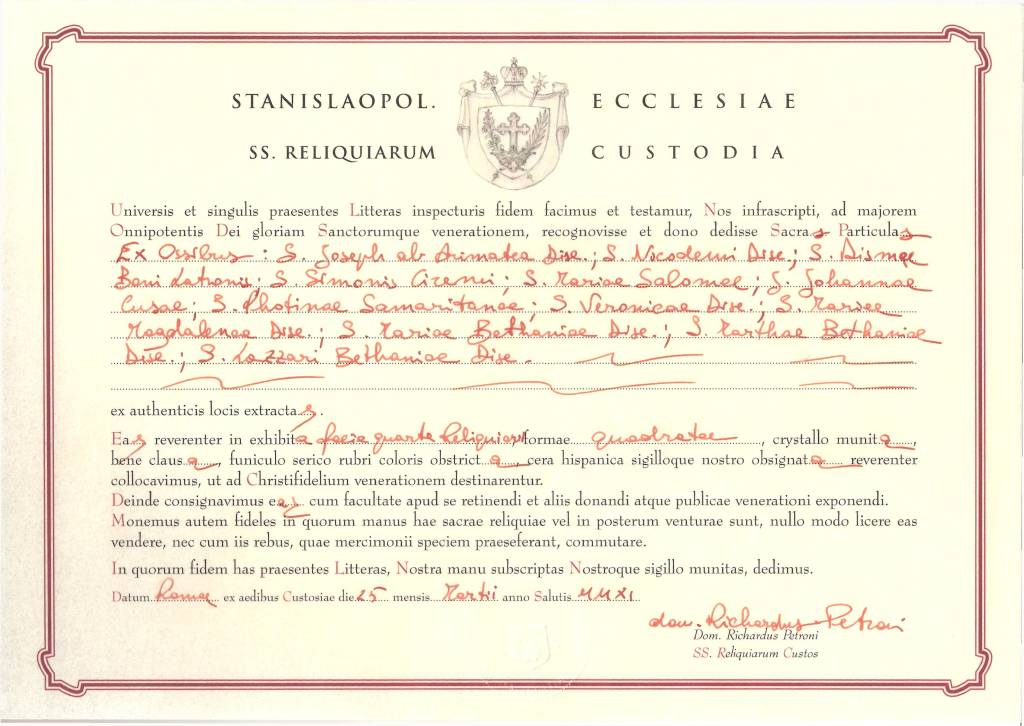 STANISLAOPOL. ECCLESIAE
SS. RELIQUIARUM CUSTODIA
Universis et singulis praesentes Litteras inspecturis fidem facimus et testamur, Nos infrascripti, ad majorem
Onnipotentis Dei gloriam Sanctorumque venerationem, recognovisse et dono dedisse Sacras Particulas
Ex Ossibus : S. Joseph ab Arimatea Disc.; S. Nicodemi Disc.; S. Dismae
Boni Latronis; S. Simonis Cirenei; S. Mariae Salomae; S. Johannae
Cusae; S. Photinae Samaritanae; S. Veronicae Disc.; S. Mariae
Magdalenae Disc.; S. Mariae Bethaniae Disc.; S. Marthae Bethaniae
Disc.; S. Lazzari Bethaniae Disc.
ex authenticis locis extractas.
Eas reverenter in exhibita quarta formae quadratae, crystallo munita,
bene clausa, funiculo serico rubri coloris obstricta, cera hispanica sigilloque nostro obsignata reverenter
collocavimus, ut ad Christifidelium venerationem destinarentur.
Deinde consignavimus eas cum facultate apud se retinendi et aliis donandi atque publicae venerationi exponendi.
Monemus autem fideles in quorum manus hae sacrae reliquiae vel in posterum venturae sunt, nullo modo licere eas
vendere, nec cum iis rebus, quae mercimonii speciem praeseferant, commutare.
In quorum fidem has praesentes Litteras, Nostra manu subscriptas Nostroque sigillo munitas, dedimus.
Datum Romae ex aedibus Custosiae die 25 mensis Martii anno Salutis MMXI
don. Richardus Petroni
Dom. Richardus Petroni
SS. Reliquiarum Custos